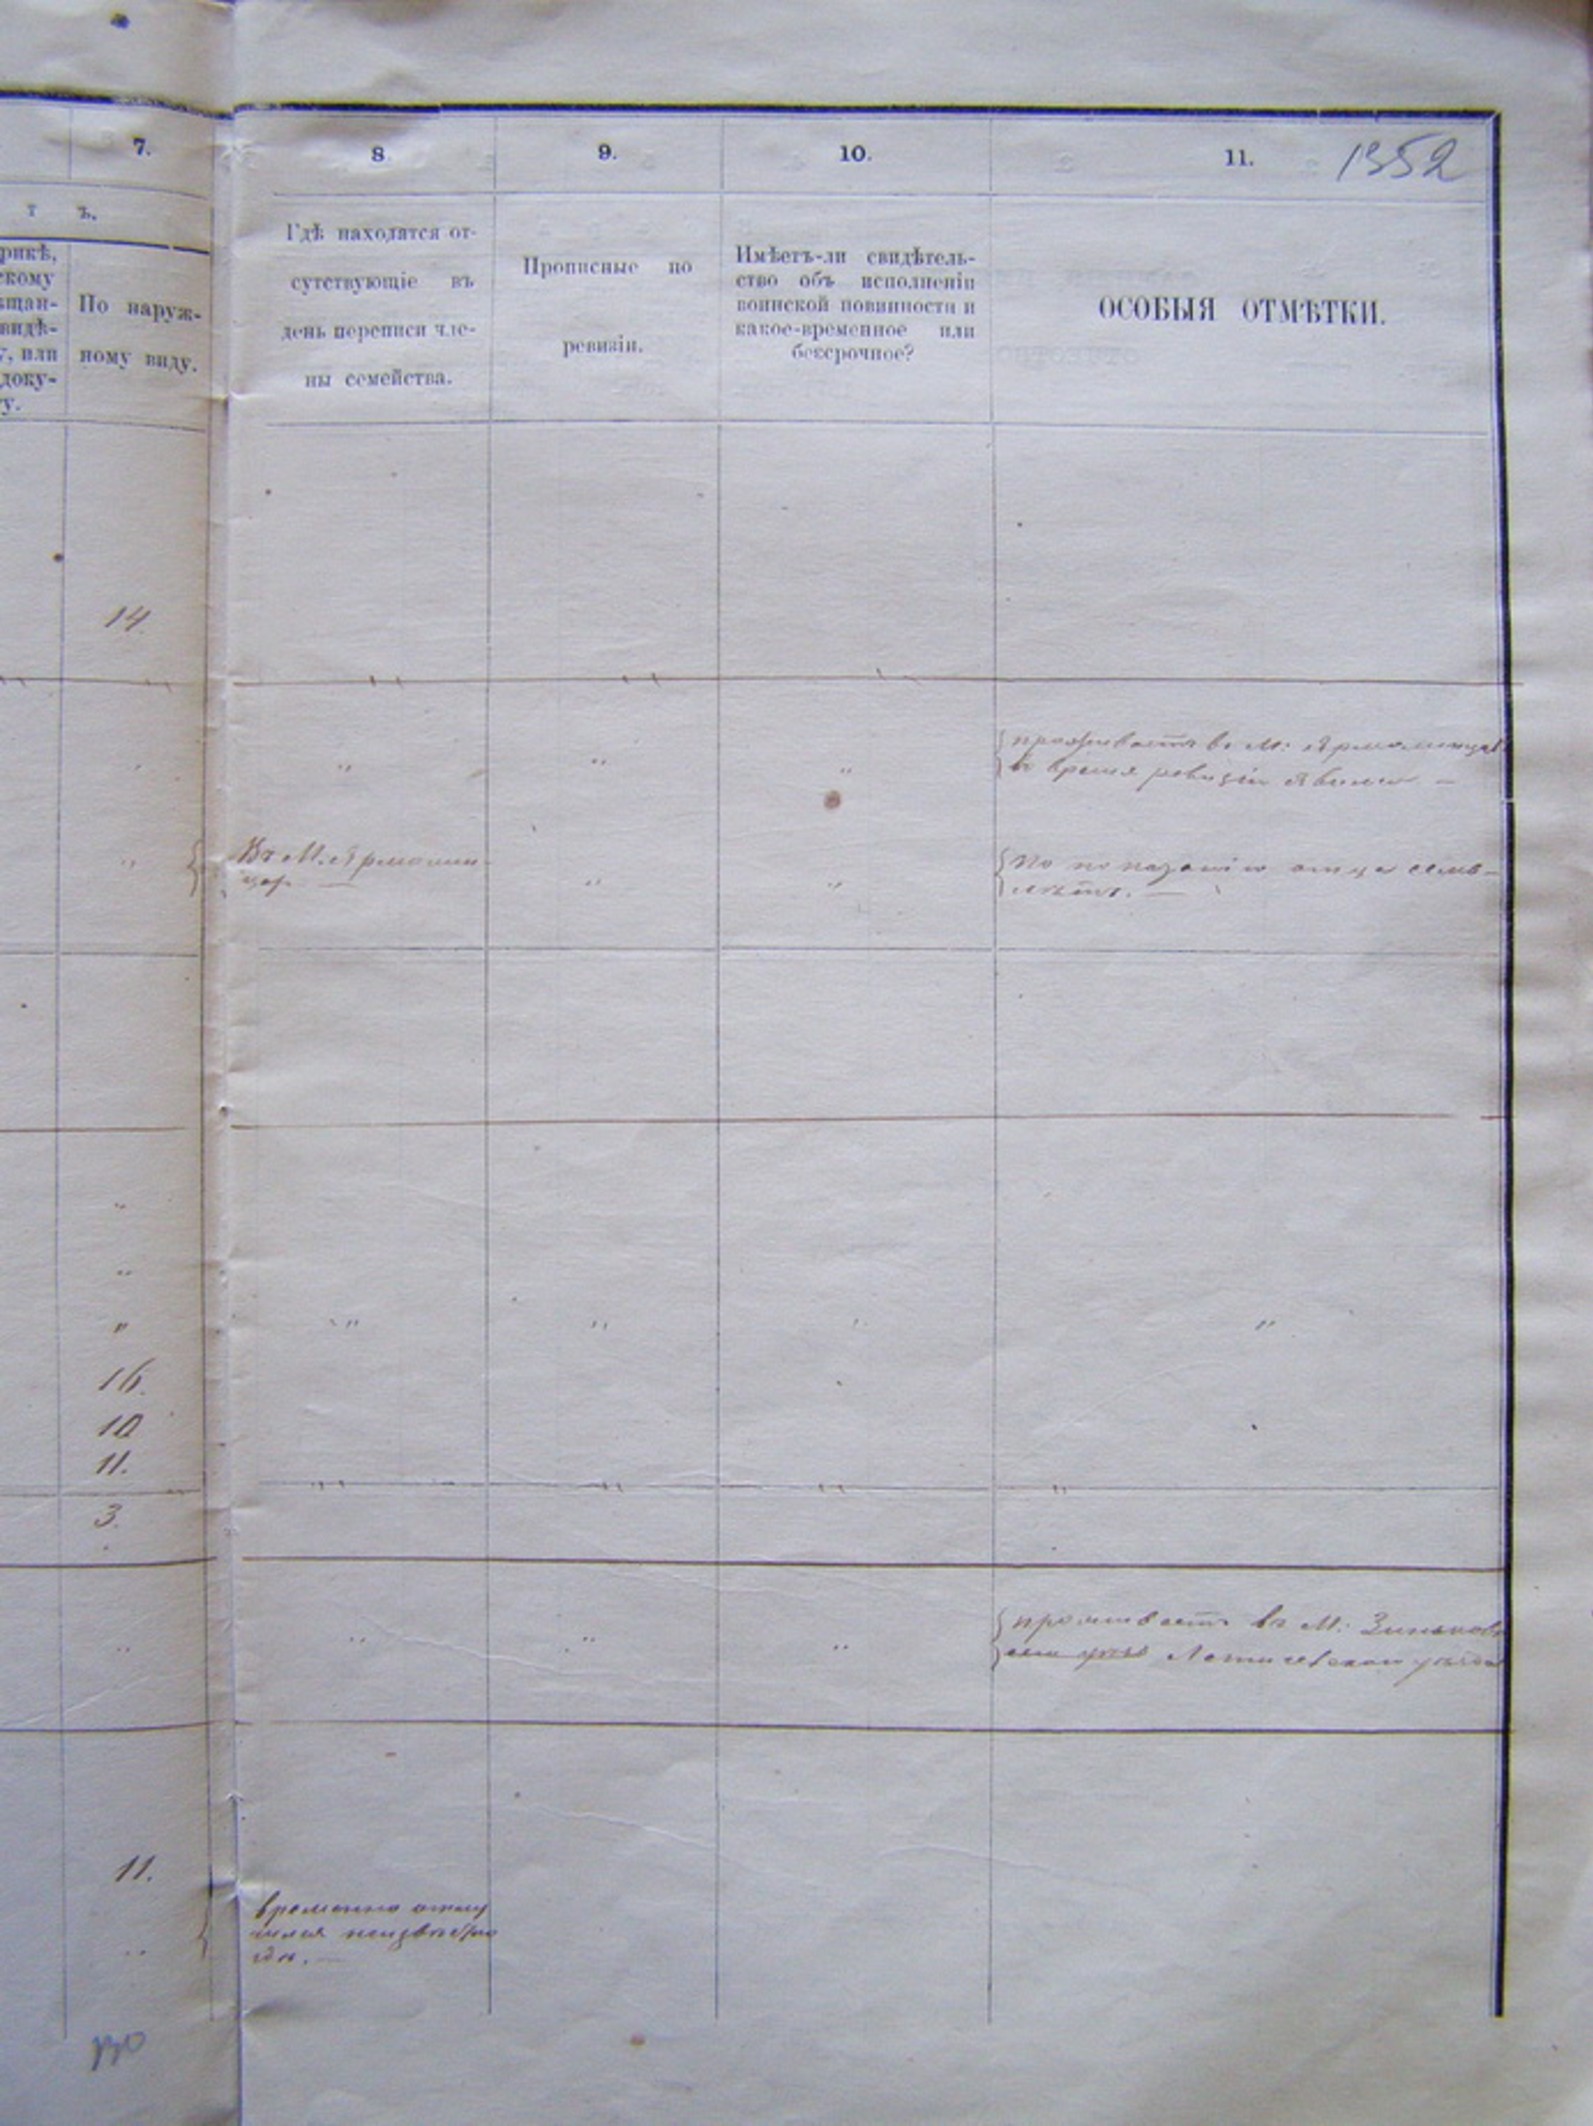 7.
8
9.
10.
11.
1352
т ъ.
рикѣ,
скому
щан-
видѣ-
у, или
доку-
у.
По наруж-
ному виду.
Гдѣ находятся от-
сутствующіе въ
день переписи чле-
ны семейства.
Прописные по
ревизіи.
Имѣетъ-ли свидѣтель-
ство объ исполненіи
воинской повинности и
какое-временное или
безсрочное?
ОСОБЫЯ ОТМѢТКИ.
14.
проживаетъ в М:
время ревизіи
Въ М. Ярмолин-
цах
По показанію отца семь
лѣтъ.
16.
10
11.
3.
проживаетъ въ М: Зиньков
Летичевскаго уѣзда
11.
временно отлу
чился неизвѣстно
гдѣ.
130